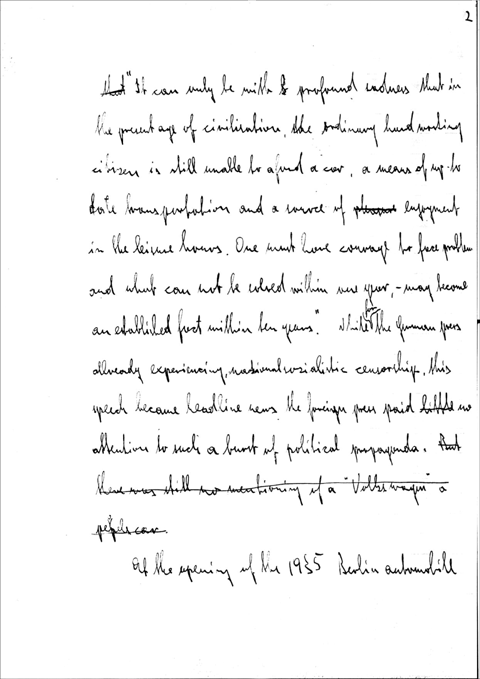 2
that "It can only be with profound sadness that in
the present age of civilisation, the ordinary hard working
citizen is still unable to aford a car, a means of up-to
date transportation and a source of enjoyment
in the leisure hours. One must have courage to face problem
and what can not be solved within one year, - may become
an established fact within ten years." While for the German press
allready experiencing, nationalsozialistic censorship, this
speech became headline news the foreign press paid little no
attention to such a burst of political propaganda. But
there was still no mentioning of a "Volkswagen" a
peoples car.
At the opening of the 1935 Berlin automobill